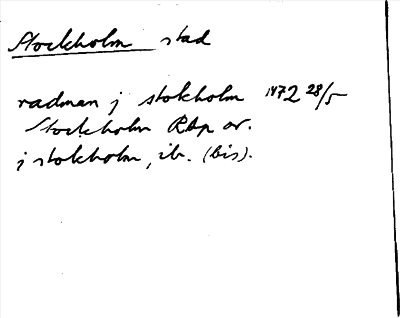 Stockholm stad
radman j stokholm 1472 28/5
Stockholm RAp or.
j stokholm, ib. (bis).